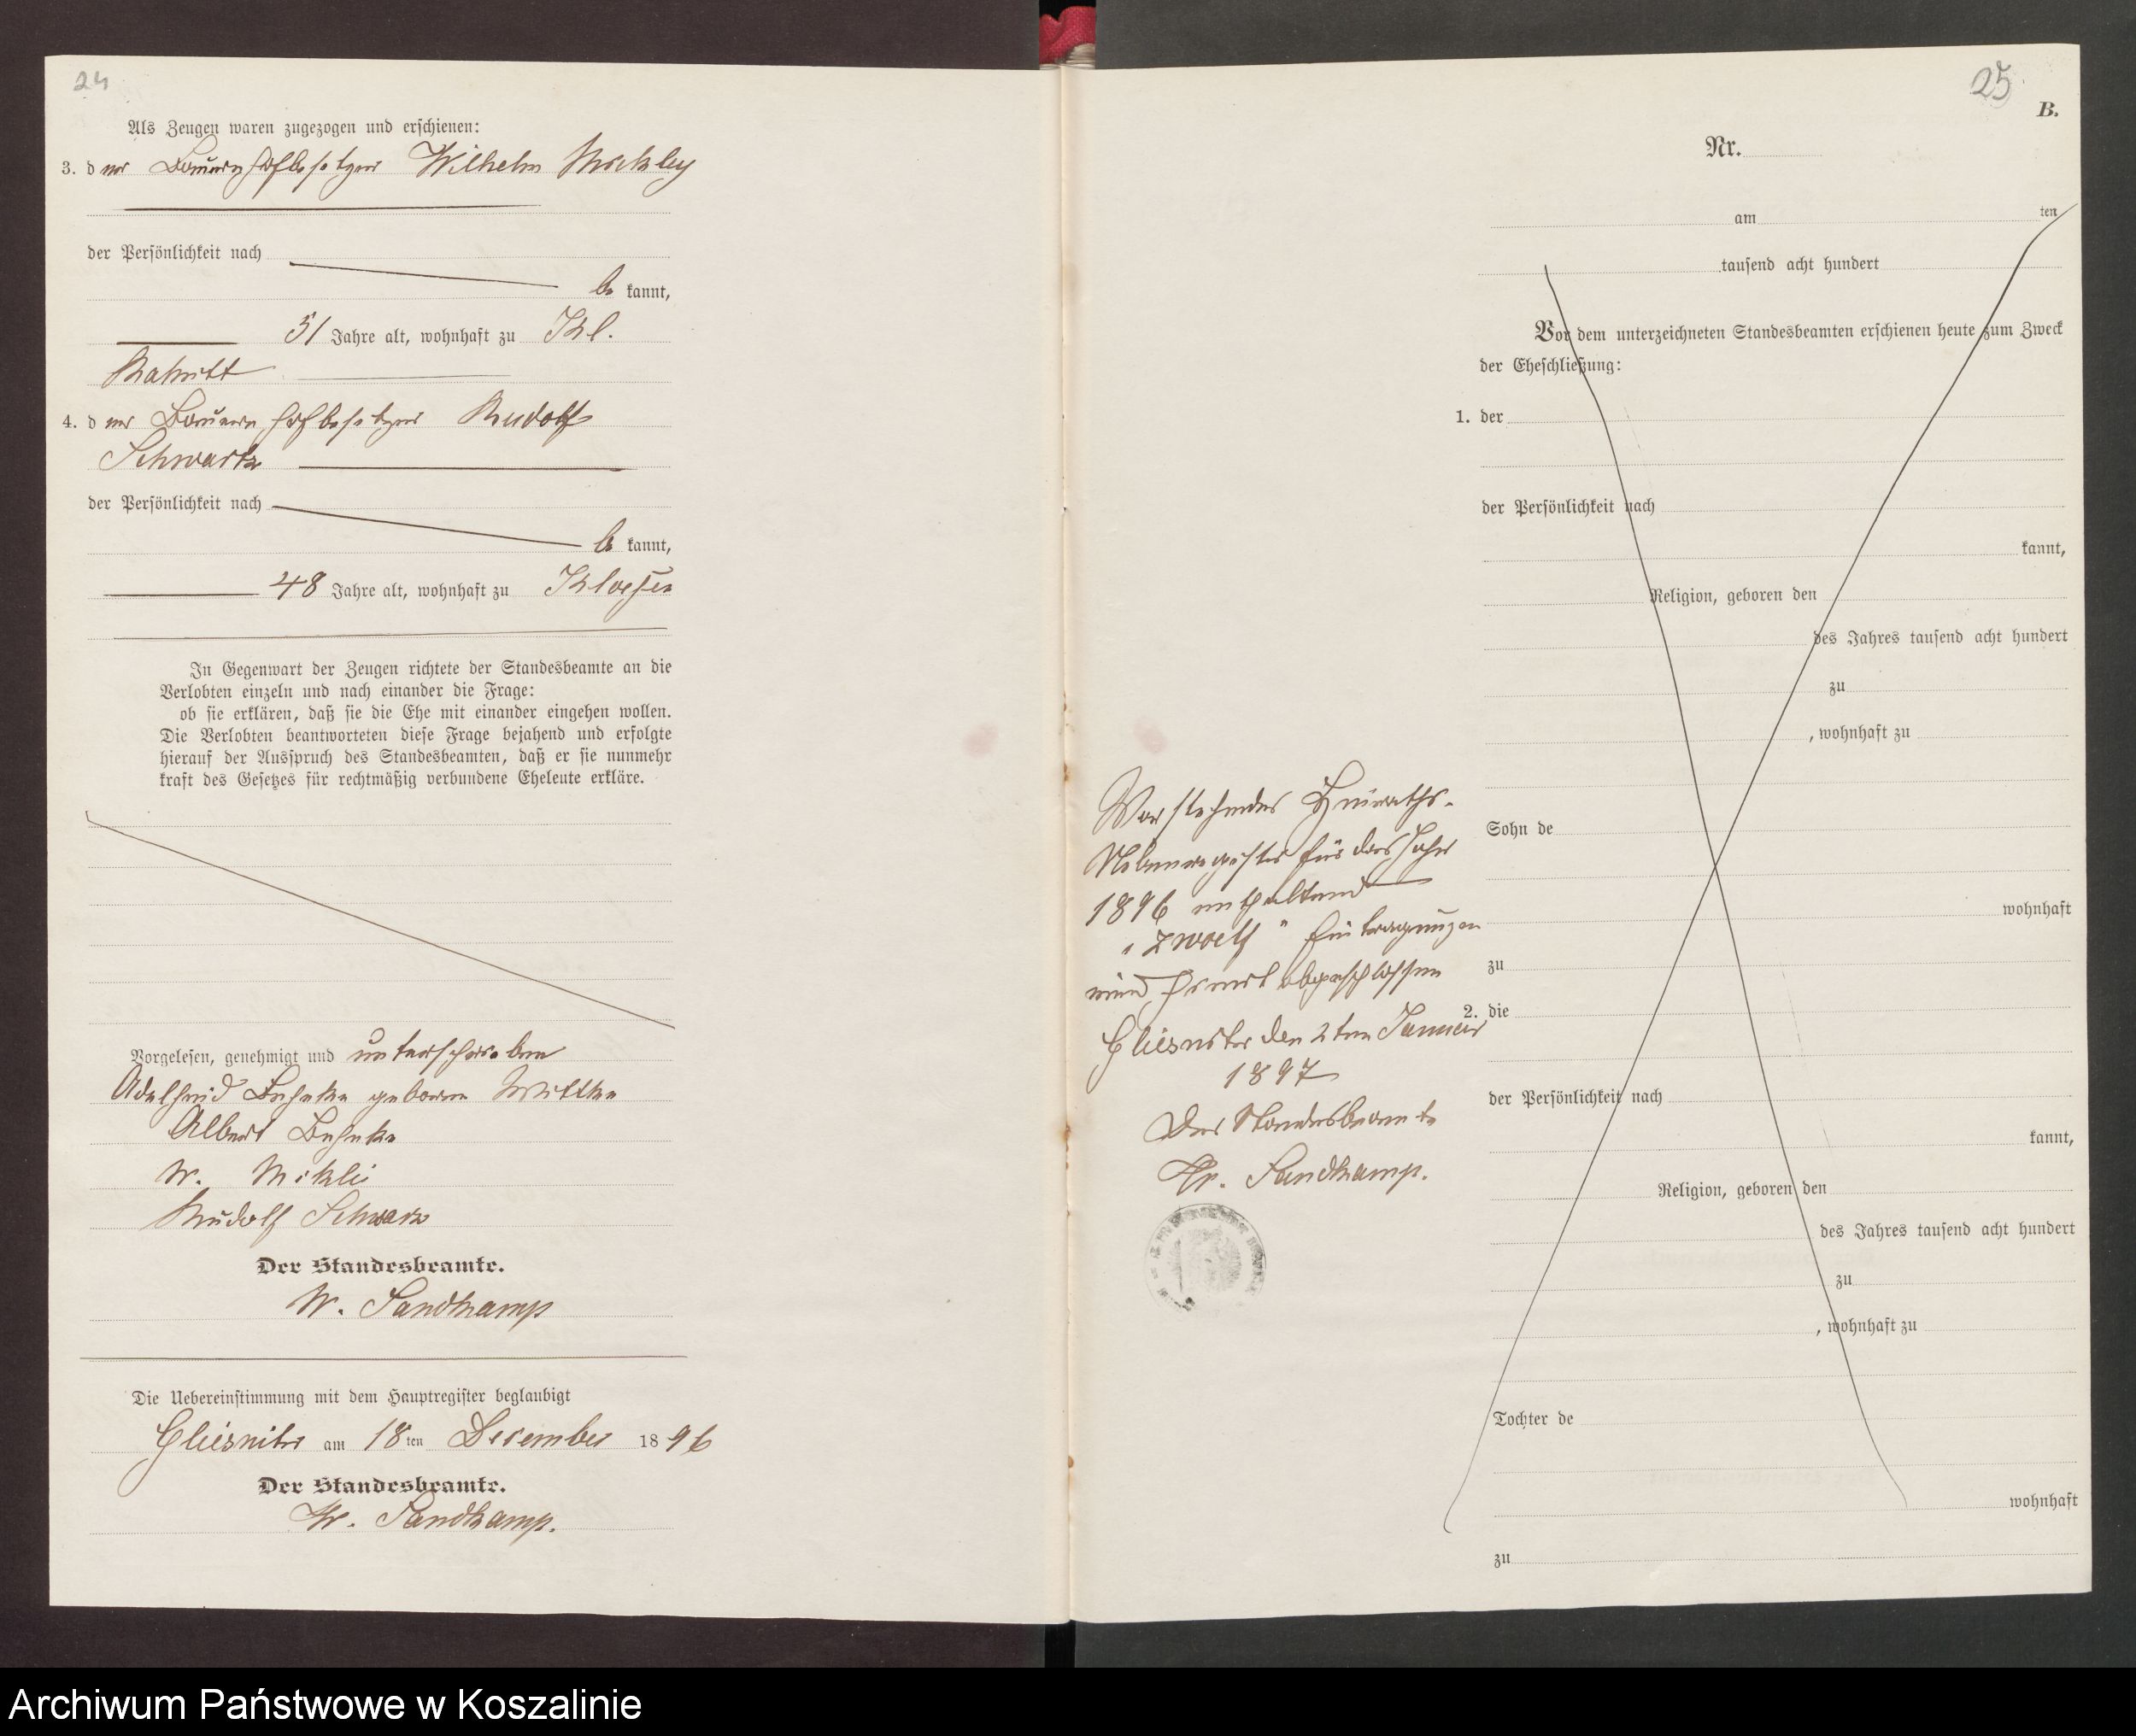 24
Als Zeugen waren zugezogen und erschienen:
3. d er Bauernhofbesitzer Wilhelm Mickley
der Persönlichkeit nach
be kannt,
51 Jahre alt, wohnhaft zu Kl.
Rakitt
4. d er Bauernhofbesitzer Rudolf
Schwartz
der Persönlichkeit nach
be kannt,
48 Jahre alt, wohnhaft zu
In Gegenwart der Zeugen richtete der Standesbeamte an die
Verlobten einzeln und nach einander die Frage:
ob sie erklären, daß sie die Ehe mit einander eingehen wollen.
Die Verlobten beantworteten diese Frage bejahend und erfolgte
hierauf der Ausspruch des Standesbeamten, daß er sie nunmehr
kraft des Gesetzes für rechtmäßig verbundene Eheleute erkläre.
Vorgelesen, genehmigt und unterschrieben
Adelheid Behnke geborene Wittke
Albert Behnke
W. Mikli
Rudolf Schwarz
Der Standesbeamte.
W. Sandkamp
Die Uebereinstimmung mit dem Hauptregister beglaubigt
Gliesnitz am 18 ten December 18 96
Der Standesbeamte.
W. Sandkamp.
Vorstehendes Heiraths-
Nebenregister für das Jahr
1896 enthaltend
"zwoelf" Eintragungen
wird hiermit abgeschlossen
Gliesnitz den 2ten Januar
1897
Der Standesbeamte
W. Sandkamp.
25
B.
Nr.
am ten
tausend acht hundert
Vor dem unterzeichneten Standesbeamten erschienen heute zum Zweck
der Eheschließung:
1. der
der Persönlichkeit nach
kannt,
Religion, geboren den
des Jahres tausend acht hundert
zu
, wohnhaft zu
Sohn de
wohnhaft
zu
2. die
der Persönlichkeit nach
kannt,
Religion, geboren den
des Jahres tausend acht hundert
zu
, wohnhaft zu
Tochter de
wohnhaft
zu
Archiwum Państwowe w Koszalinie